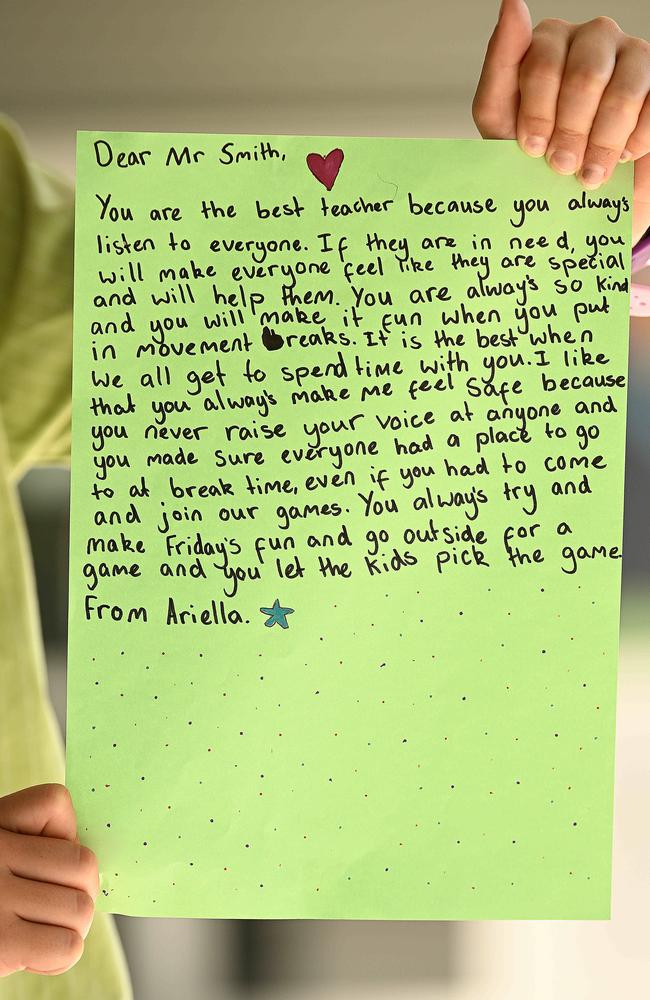 Dear Mr Smith,
You are the best teacher because you alway's
listen to everyone. If they are in need, you
will make everyone feel like they are special
and will help them. You are alway's so kind
and you will make it fun when you put
in movement breaks. It is the best when
we all get to spend time with you. I like
that you alway's make me feel safe because
you never raise your voice at anyone and
you made sure everyone had a place to go
to at break time, even if you had to come
and join our games. You alway's try and
make Friday's fun and go outside for a
game and you let the kids pick the game.
From Ariella.